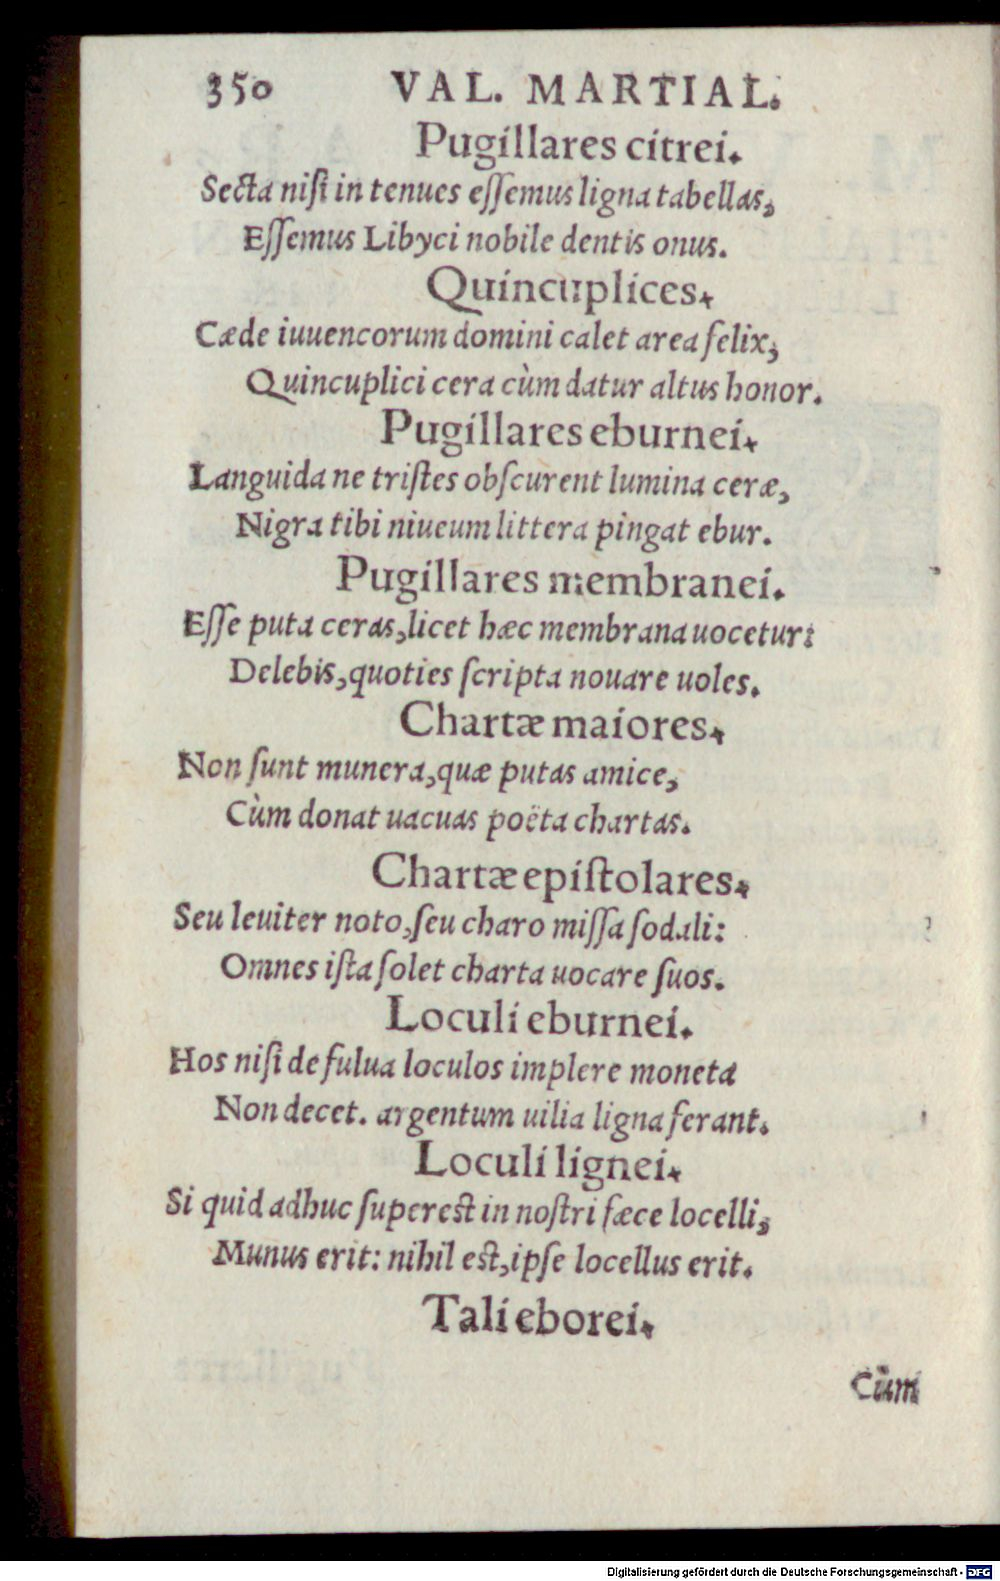 350 VAL. MARTIAL.
Pugillares citrei.
Secta niſi in tenues eſſemus ligna tabellas,
Eſſemus Libyci nobile dentis onus.
Quincuplices.
Cæde iuuencorum domini calet area felix,
Quincuplici cera cùm datur altus honor.
Pugillares eburnei.
Languida ne triſtes obſcurent lumina ceræ,
Nigra tibi niueum littera pingat ebur.
Pugillares membranei.
Eſſe puta ceras, licet hæc membrana uocetur:
Delebis, quoties ſcripta nouare uoles.
Chartæ maiores.
Non ſunt munera, quæ putas amice,
Cùm donat uacuas poëta chartas.
Chartæ epiſtolares.
Seu leuiter noto, ſeu charo miſſa ſodali:
Omnes iſta ſolet charta uocare ſuos.
Loculi eburnei.
Hos niſi de fulua loculos implere moneta
Non decet. argentum uilia ligna ferant.
Loculi lignei.
Si quid adhuc ſupereſt in noſtri fæce locelli,
Munus erit: nihil eſt, ipſe locellus erit.
Tali eborei.
Cùm
Digitalisierung gefördert durch die Deutsche Forschungsgemeinschaft - DFG